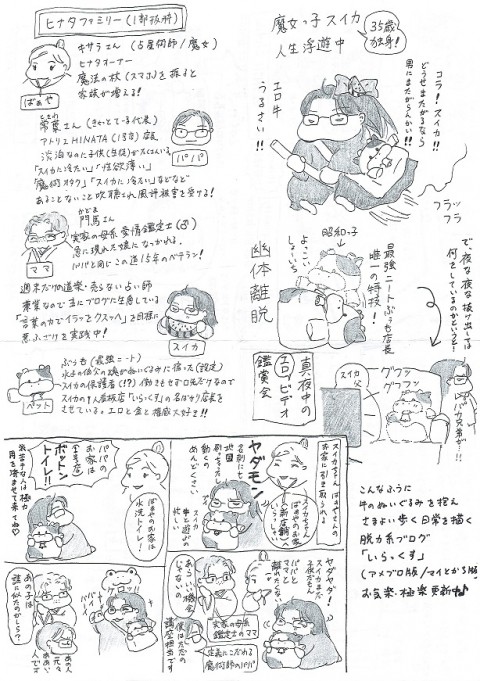 ヒナタファミリー(1部抜粋)
キサラさん(占星術師/魔女)
ヒナタオーナー
魔法の杖(スマホ)を振ると
家族が増える!
ばぁや
アトリエHINATA(1号店)店長
「スイカに冷たい」「性欲薄い」
「魔術オタク」「スイカに冷たい」などなど
あることないこと吹聴され風評被害を受ける!
パパ
門馬さん
実家の母系愛情鑑定士(♂)
急に現れた娘になつかれる。
パパと同じこの道15年のベテラン!
ママ
週末だけ道楽・売らない占い師
兼業なので主にブログに生息している
「言葉の力でイラッとクスッへ」を目標に
悪ふざけを実践中!
スイカ
ぷぅも(最強ニート)
水子の伯父の魂がぬいぐるみに宿った(設定)
スイカの保護者(!?)働きもせずエロ充だなので
スイカの1人産板店「いらっくす」の名ばかり店長を
させている。エロと金と権威大好き!!
ペット
魔女っ子スイカ
人生浮遊中
35歳
独身!
コラ!スイカ!!
どうせまたがるなら
男にまたがらんかい!!
エロ牛
うるさい!!
フラッ
フラ
で、夜な夜な抜け出しては
何をしているのかというと…
昭和っ子
よっこい
しょーいち
最強ニートぷぅも店長
唯一の特技!
幽体離脱
真夜中の
エロビデオ
鑑賞会
スイカ
父
グフッ
グフフッ
バカ兄弟が…!!
パパの
お家は
ボットン
トイレ!!
ばぁやのお家は
水洗トイレ!
スイカちゃん、ばぁやさんの
お家に引き取られる
ヤダモン!
動くの
めんどくさい
スイカ
牛と遊ぶの
忙しい
あの子は
誰に似たのかしら?
ケロッ!
バイバイ
パパ
ヤダヤダ!
スイカまだ
子供だもん
パパと
ママと
離れたくない
実家の母系
鑑定士のママ
魔術師のパパ
僕はただの
講座担当です
こんなふうに
牛のぬいぐるみを抱え
さまよい歩く日常を描く
脱力系ブログ
「いらっくす」
(アメブロ版/マイとから版)
お気楽・極楽更新中♪